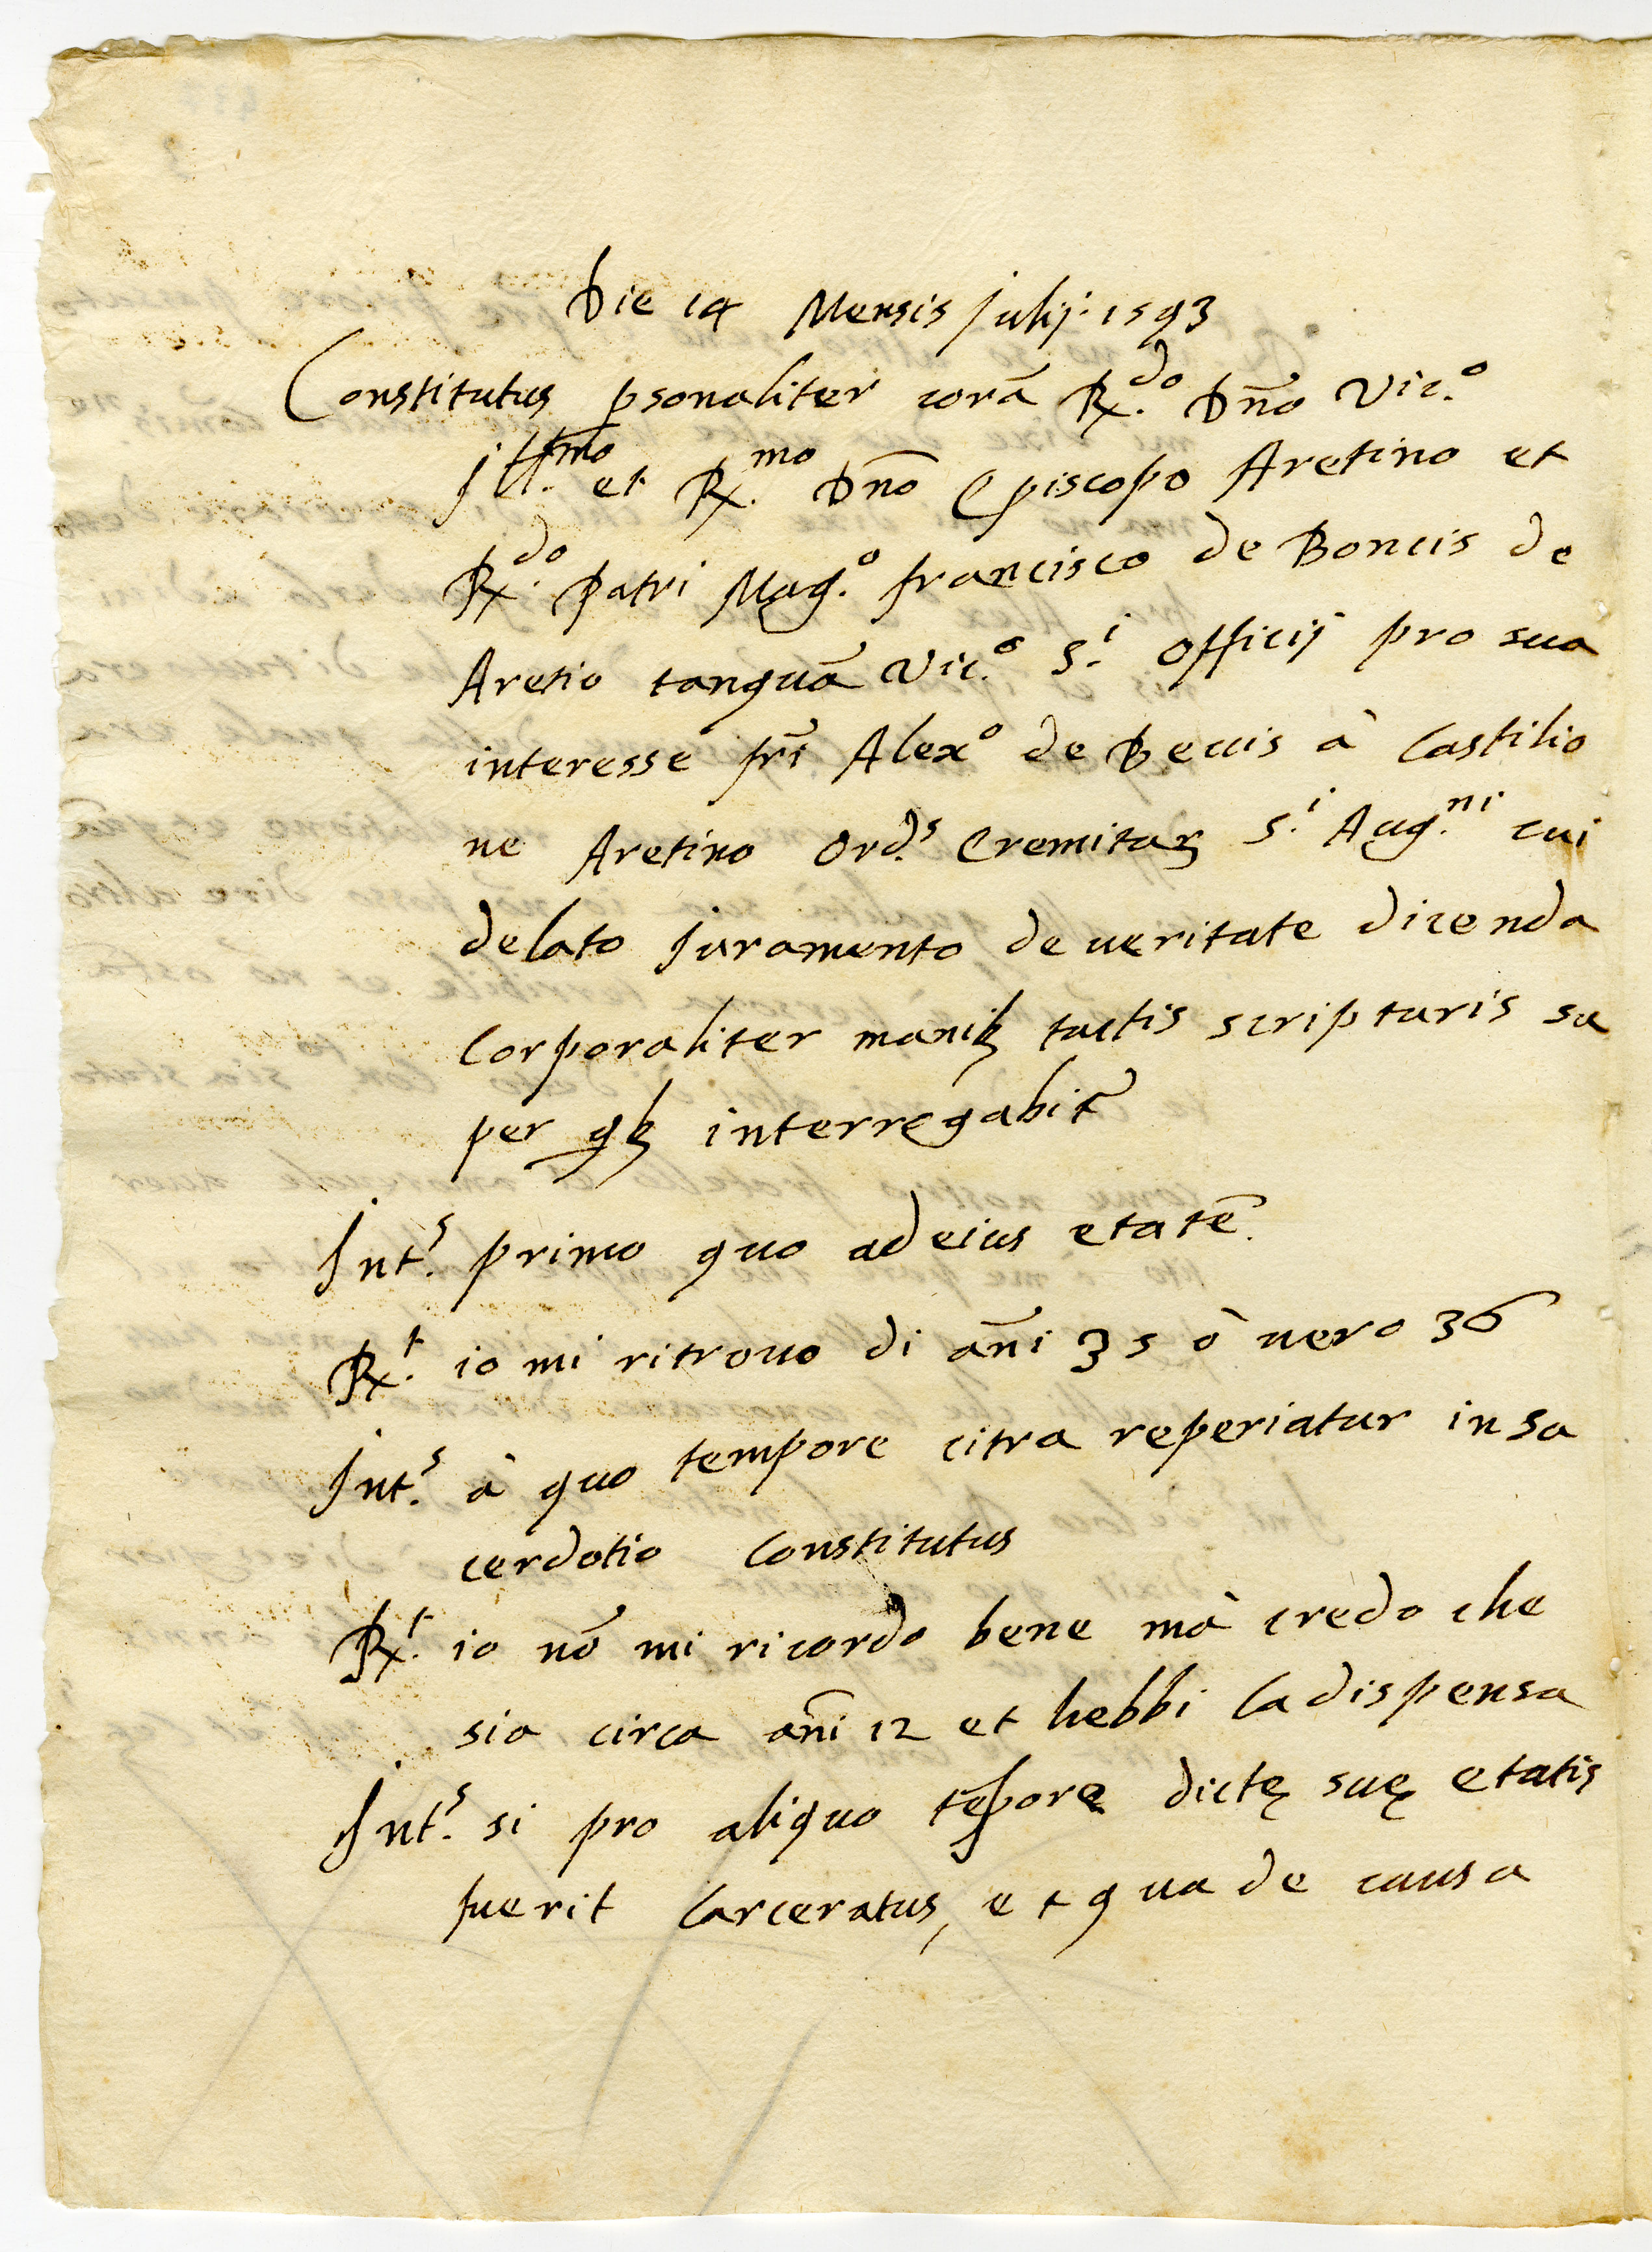 Die 14 Mensis Julij. 1593
Constitutus psonaliter corā Rx.do Dño Vic.o
Ill.mo et Rx.mo Dño Episcopo Aretino et
Rx.do Patri Mag.o francisco de Boncis de
Aretio tanquā Vic.o S.i Officij pro sua
interesse fr̄i Alexo de Beccis à Castilio
ne Aretino Ord.s Eremitaꝝ S.i Aug.ni cui
delato Juramento de ueritate dicenda
Corporaliter manibꝫ tactis scripturis su
per qbꝫ interrogabit̄
Int.s primo quo ad eius etatē.
Rx.t io mi ritrouo di añi 35 ò uero 36
Int.s à quo tempore citra reperiatur in Sa
cerdotio Constitutus
Rx.t io nō mi ricordo bene mà credo che
sia circa añi 12 et hebbi la dispensa
Int.s si pro aliquo tēpore dictę suę etatis
fuerit Carceratus, et qua de causa